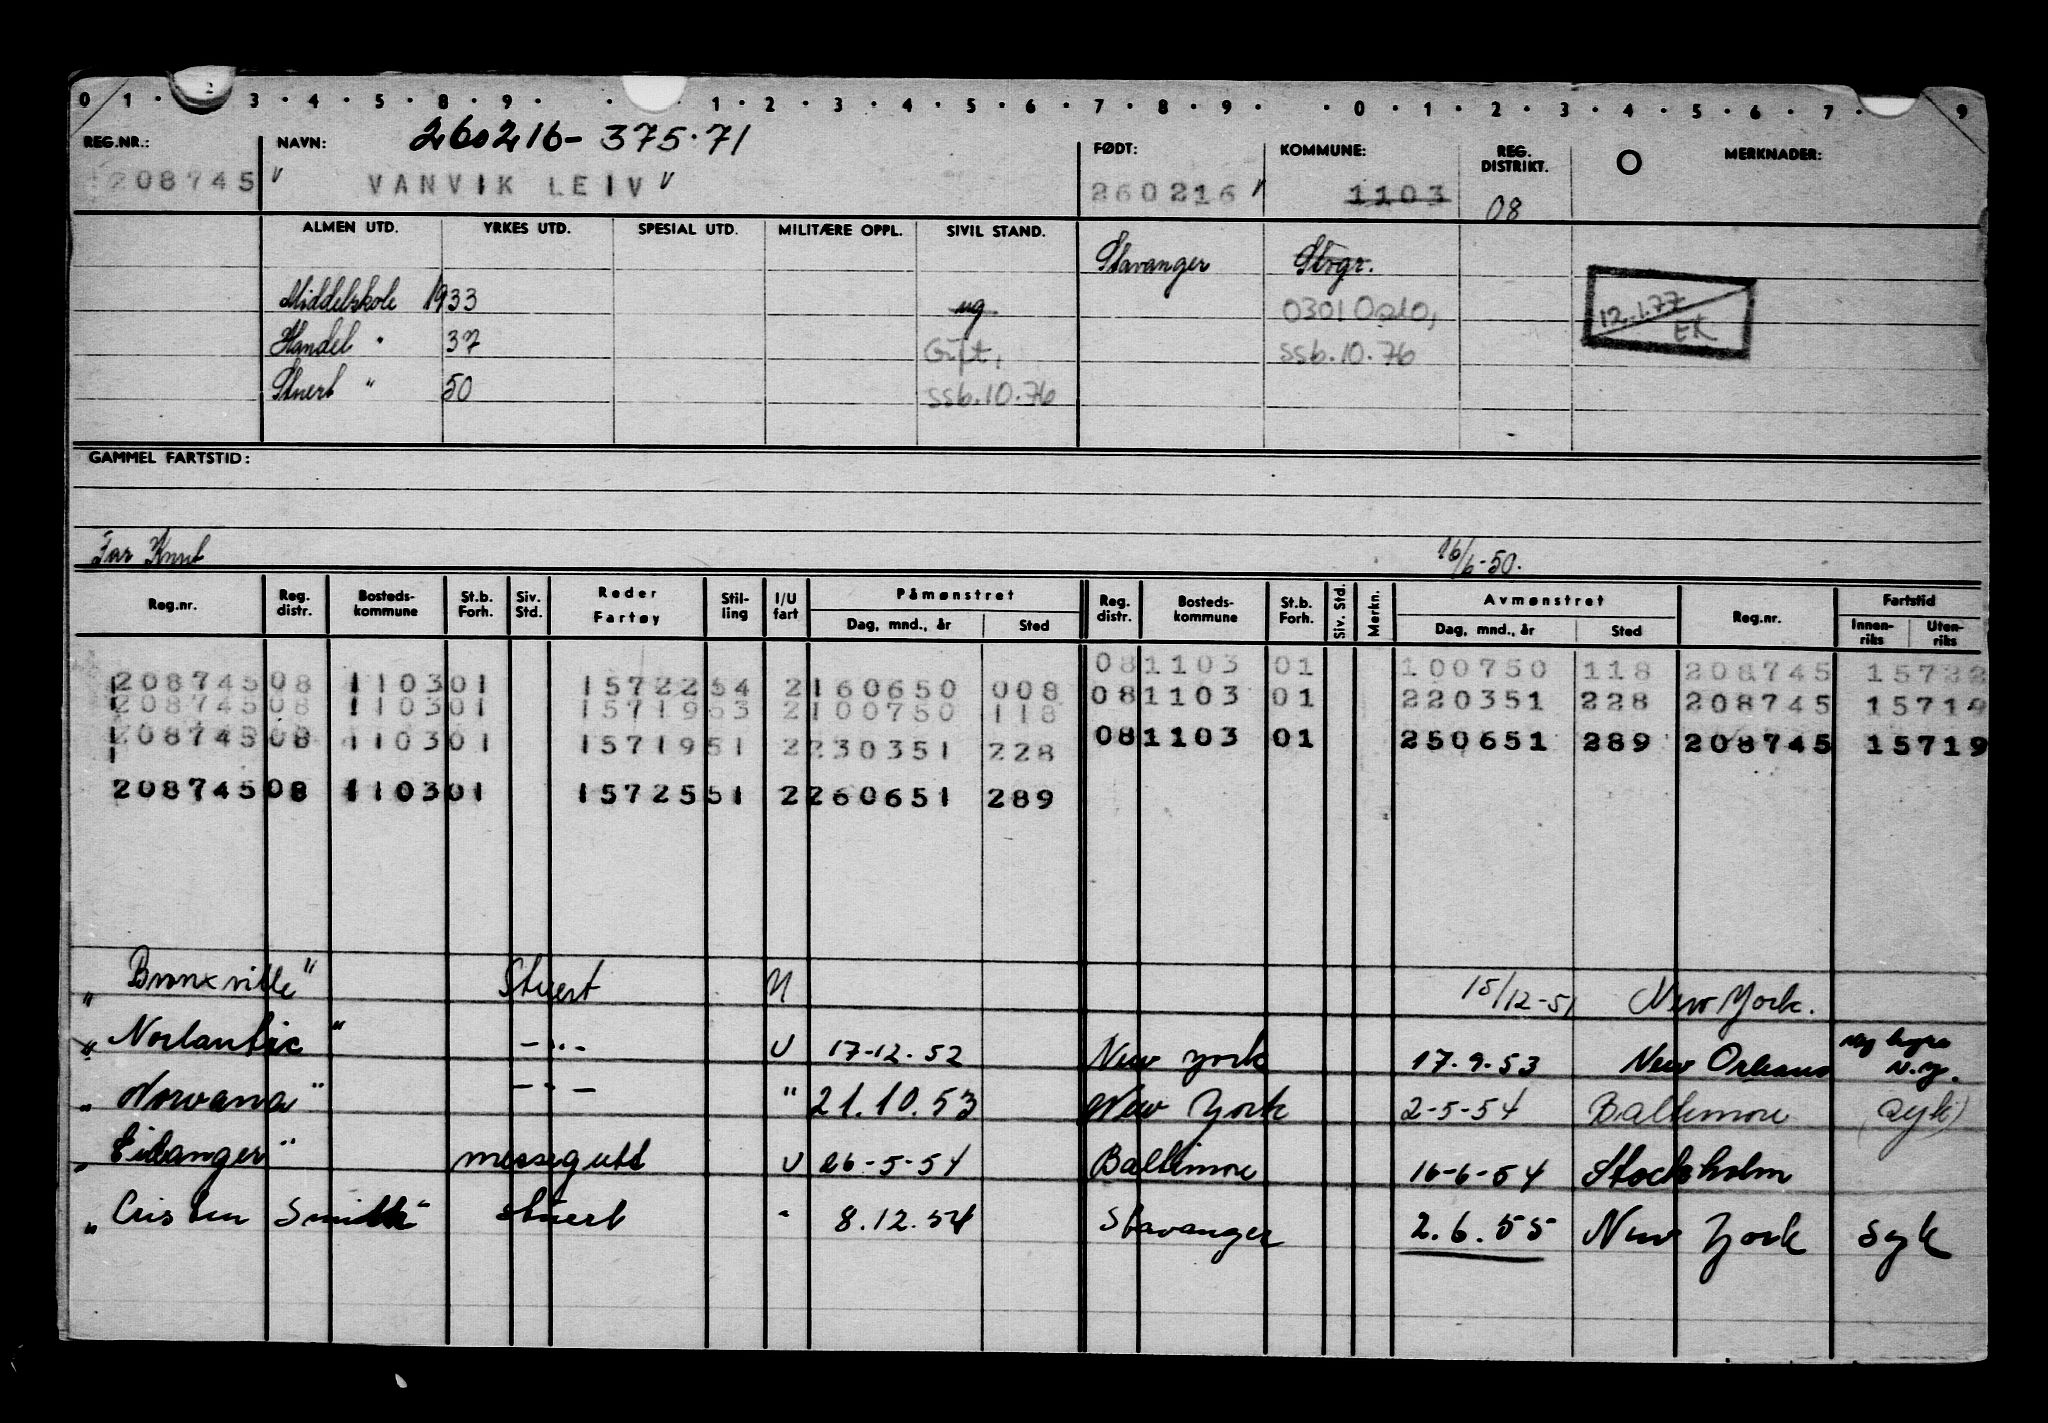 0 1 · 2 3 · 4 · 5 · 8 · 9 · · 1 · 2 · 3 · 4 · 5 · 6 · 7 · 8 · 9 · · 0 · 1 · 2 · 3 · 4 · 5 · 6 · 7 · 9
REG.NR.: NAVN: 260216- 375·71 FØDT: KOMMUNE: REG. DISTRIKT. O MERKNADER:
208745 VANVIK LEIV 260216 1103 08
ALMEN UTD. YRKES UTD. SPESIAL UTD. MILITÆRE OPPL. SIVIL STAND.
Stavanger Stvgr.
Middelskole 1933 ug 0301 Oslo, 12.1.77
Handel " 37 Gift, ssb.10.76 EK
Stuert " 50 ssb.10.76
GAMMEL FARTSTID:
Far Knut 16/6-50.
Reg.nr. Reg. distr. Bosteds-kommune St.b. Forh. Siv. Std. Reder Fartøy Stil-ling I/U fart Påmønstret Dag, mnd., år Sted Reg. distr. Bosteds-kommune St.b. Forh. Siv. Std. Merkn. Avmønstret Dag, mnd., år Sted Reg.nr. Fartstid Innen-riks Uten-riks
208745 08 1103 01 15722 54 2 160650 008 08 1103 01 100750 118 208745 15722
208745 08 1103 01 15719 53 2 100750 118 08 1103 01 220351 228 208745 15719
208745 08 1103 01 15719 51 2 230351 228 08 1103 01 250651 289 208745 15719
208745 08 1103 01 15725 51 2 260651 289
" Bronxville " Stuert U 15/12-51 New York.
" Norlantic " -"- U 17-12.52 New York 17.9.53 New Orleans n.y.
" Norvana " -"- " 21.10.53 New York 2-5-54 Baltimore (syk)
" Eidanger " messegutt U 26-5-54 Baltimore 16-6-54 Stockholm
" Cristen Smith " stuert " 8.12.54 Stavanger 2.6.55 New York syk